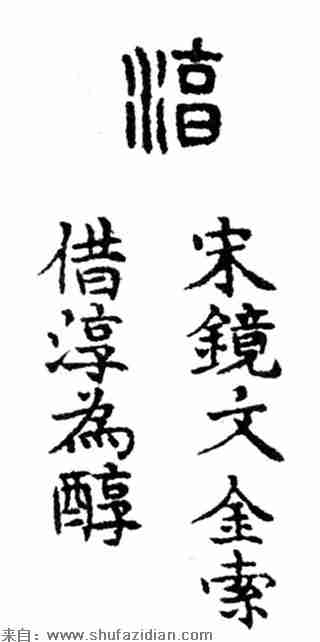 淳
宋鏡文金索
借淳為醇
来自：www.shufazidian.com